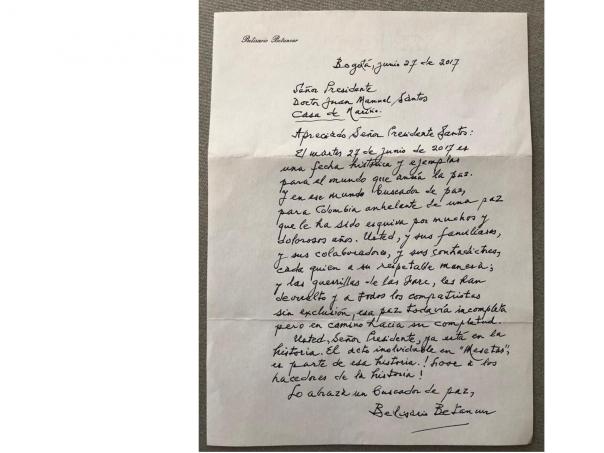 Belisario Betancur
Bogotá, junio 27 de 2017
Señor Presidente
Doctor Juan Manuel Santos
Casa de Nariño.
Apreciado Señor Presidente Santos:
El martes 27 de junio de 2017 es
una fecha histórica y ejemplar
para el mundo que ansía la paz.
Y en ese mundo buscador de paz,
para Colombia anhelante de una paz
que le ha sido esquiva por muchos y
dolorosos años. Usted, y sus familiares,
y sus colaboradores, y sus contradictores,
cada quien a su respetable manera;
y las guerrillas de las Farc, les han
devuelto y a todos los compatriotas
sin exclusión, esa paz todavía incompleta
pero en camino hacia su completud.
Usted, Señor Presidente, ya está en la
historia. El acto inolvidable en "Mesetas",
es parte de esa historia. ! Loor a los
hacedores de la historia !
Lo abraza un buscador de paz,
Belisario Betancur